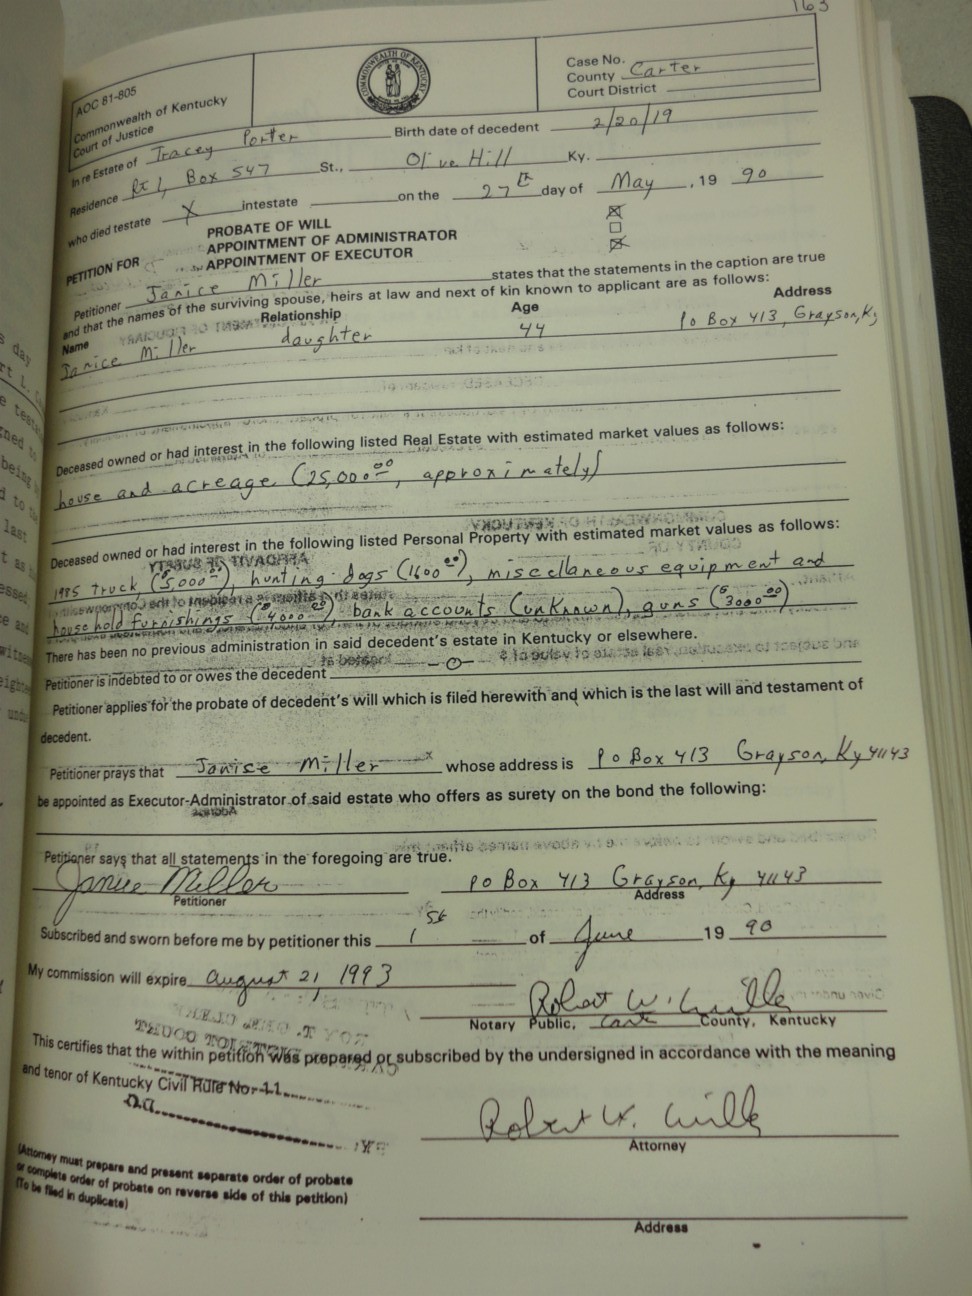 163
AOC 81-805
Commonwealth of Kentucky
Court of Justice
COMMONWEALTH OF KENTUCKY
Case No.
County Carter
Court District
In re Estate of Tracey Porter Birth date of decedent 2/20/19
Residence Rt 1, Box 547 St., Olive Hill Ky.
who died testate X intestate on the 27th day of May, 19 90
PETITION FOR
PROBATE OF WILL
APPOINTMENT OF ADMINISTRATOR
APPOINTMENT OF EXECUTOR
Petitioner Janice Miller states that the statements in the caption are true
and that the names of the surviving spouse, heirs at law and next of kin known to applicant are as follows:
Name Relationship Age Address
Janice Miller daughter 44 Po Box 413, Grayson, Ky
Deceased owned or had interest in the following listed Real Estate with estimated market values as follows:
house and acreage (25,000.00, approximately)
Deceased owned or had interest in the following listed Personal Property with estimated market values as follows:
1985 truck ($5000.00), hunting dogs (1600.00), miscellaneous equipment and
household furnishings ($4000.00), bank accounts (unknown), guns ($3000.00)
There has been no previous administration in said decedent's estate in Kentucky or elsewhere.
Petitioner is indebted to or owes the decedent -0-
Petitioner applies for the probate of decedent's will which is filed herewith and which is the last will and testament of
decedent.
Petitioner prays that Janise Miller x whose address is Po Box 413 Grayson, Ky 41143
be appointed as Executor-Administrator of said estate who offers as surety on the bond the following:
Petitioner says that all statements in the foregoing are true.
Janice Miller Po Box 413 Grayson, Ky 41143
Petitioner Address
Subscribed and sworn before me by petitioner this 1st of June 19 90
My commission will expire August 21, 1993
Robert W. Miller
Notary Public, Carter County, Kentucky
This certifies that the within petition was prepared or subscribed by the undersigned in accordance with the meaning
and tenor of Kentucky Civil Rule No. 11
Robert W. Miller
Attorney
(Attorney must prepare and present separate order of probate
or complete order of probate on reverse side of this petition)
(To be filed in duplicate)
Address